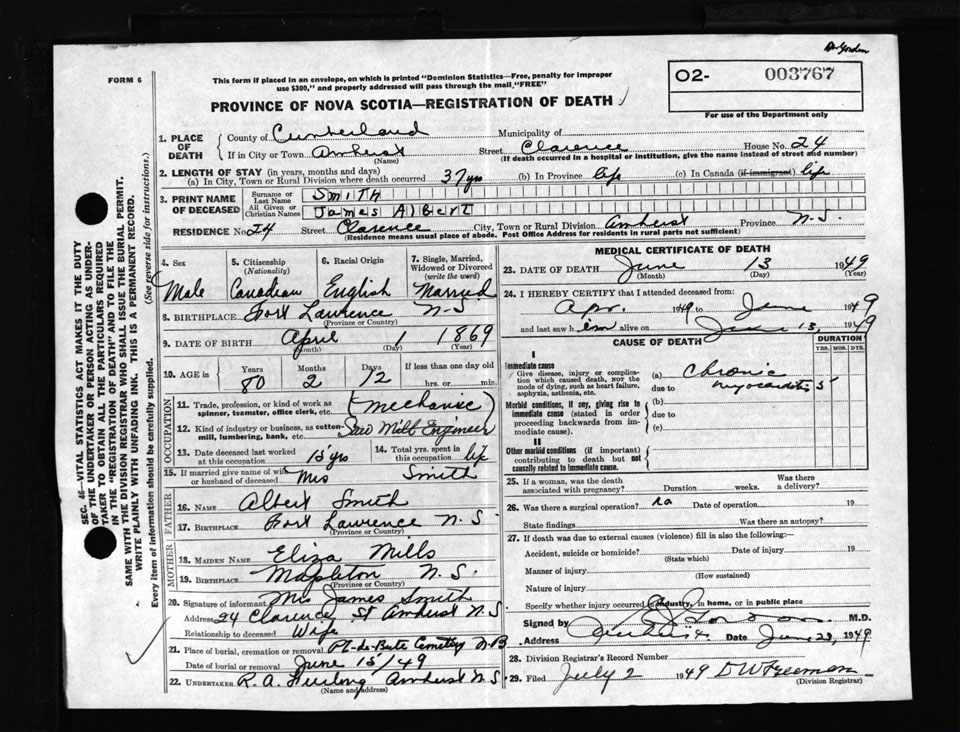 Dr Gordon
FORM 6
This form if placed in an envelope, on which is printed "Dominion Statistics—Free, penalty for improper
use $300," and properly addressed will pass through the mail "FREE"
O2- 003767
For use of the Department only
PROVINCE OF NOVA SCOTIA—REGISTRATION OF DEATH
1. PLACE OF DEATH
County of Cumberland Municipality of
If in City or Town Amherst Street Clarence House No. 24
(Name) (If death occurred in a hospital or institution, give the name instead of street and number)
2. LENGTH OF STAY (in years, months and days)
(a) In City, Town or Rural Division where death occurred 37 yrs (b) In Province life (c) In Canada (if immigrant) life
3. PRINT NAME OF DECEASED
Surname or Last Name SMITH
All Given or Christian Names James Albert
RESIDENCE No. 24 Street Clarence City, Town or Rural Division Amherst Province N.S.
(Residence means usual place of abode. Post Office Address for residents in rural parts not sufficient)
4. Sex Male
5. Citizenship (Nationality) Canadian
6. Racial Origin English
7. Single, Married, Widowed or Divorced (write the word) Married
8. BIRTHPLACE Fort Lawrence N-S
(Province or Country)
9. DATE OF BIRTH April 1 1869
(Month) (Day) (Year)
10. AGE in Years 80 Months 2 Days 12 If less than one day old hrs. or min.
OCCUPATION
11. Trade, profession, or kind of work as spinner, teamster, office clerk, etc. (Mechanic)
12. Kind of industry or business, as cotton-mill, lumbering, bank, etc. Saw Mill Engineer
13. Date deceased last worked at this occupation 15 yrs
14. Total yrs. spent in this occupation life
15. If married give name of wife or husband of deceased Mrs Smith
FATHER
16. NAME Albert Smith
17. BIRTHPLACE Fort Lawrence N.S.
(Province or Country)
MOTHER
18. MAIDEN NAME Eliza Mills
19. BIRTHPLACE Mapleton N.S.
(Province or Country)
20. Signature of informant Mrs James Smith
Address 24 Clarence St Amherst N.S
Relationship to deceased Wife
21. Place of burial, cremation or removal Pt-de-Bute Cemetery N.B
Date of burial or removal June 15/49
22. UNDERTAKER R. A. Furlong Amherst N.S.
(Name and address)
MEDICAL CERTIFICATE OF DEATH
23. DATE OF DEATH June 13 1949
(Month) (Day) (Year)
24. I HEREBY CERTIFY that I attended deceased from
Apr. 1949 to June 1949
and last saw him alive on June 13, 1949
CAUSE OF DEATH
DURATION
YRS. MOS. DYS.
I
Immediate cause
Give disease, injury or complication which caused death, NOT the mode of dying, such as heart failure, asphyxia, asthenia, etc.
(a) chronic
due to myocarditis 5
Morbid conditions, if any, giving rise to immediate cause (stated in order proceeding backwards from immediate cause).
(b)
due to
(c)
II
Other morbid conditions (if important) contributing to death but not causally related to immediate cause.
25. If a woman, was the death associated with pregnancy? Duration weeks. Was there a delivery?
26. Was there a surgical operation? no Date of operation 19
State findings Was there an autopsy?
27. If death was due to external causes (violence) fill in also the following:—
Accident, suicide or homicide? Date of injury 19
(State which)
Manner of injury
(How sustained)
Nature of injury
Specify whether injury occurred in industry, in home, or in public place
Signed by M.D.
Address Date June 23, 1949
28. Division Registrar's Record Number
29. Filed July 2 1949 D W Freeman
(Division Registrar)
SEC. 46—VITAL STATISTICS ACT MAKES IT THE DUTY
OF THE UNDERTAKER OR PERSON ACTING AS UNDER-
TAKER TO OBTAIN ALL THE PARTICULARS REQUIRED
IN THE "REGISTRATION OF DEATH" AND TO FILE THE
SAME WITH THE DIVISION REGISTRAR WHO SHALL ISSUE THE BURIAL PERMIT.
WRITE PLAINLY WITH UNFADING INK. THIS IS A PERMANENT RECORD.
Every item of information should be carefully supplied. (See reverse side for instructions.)